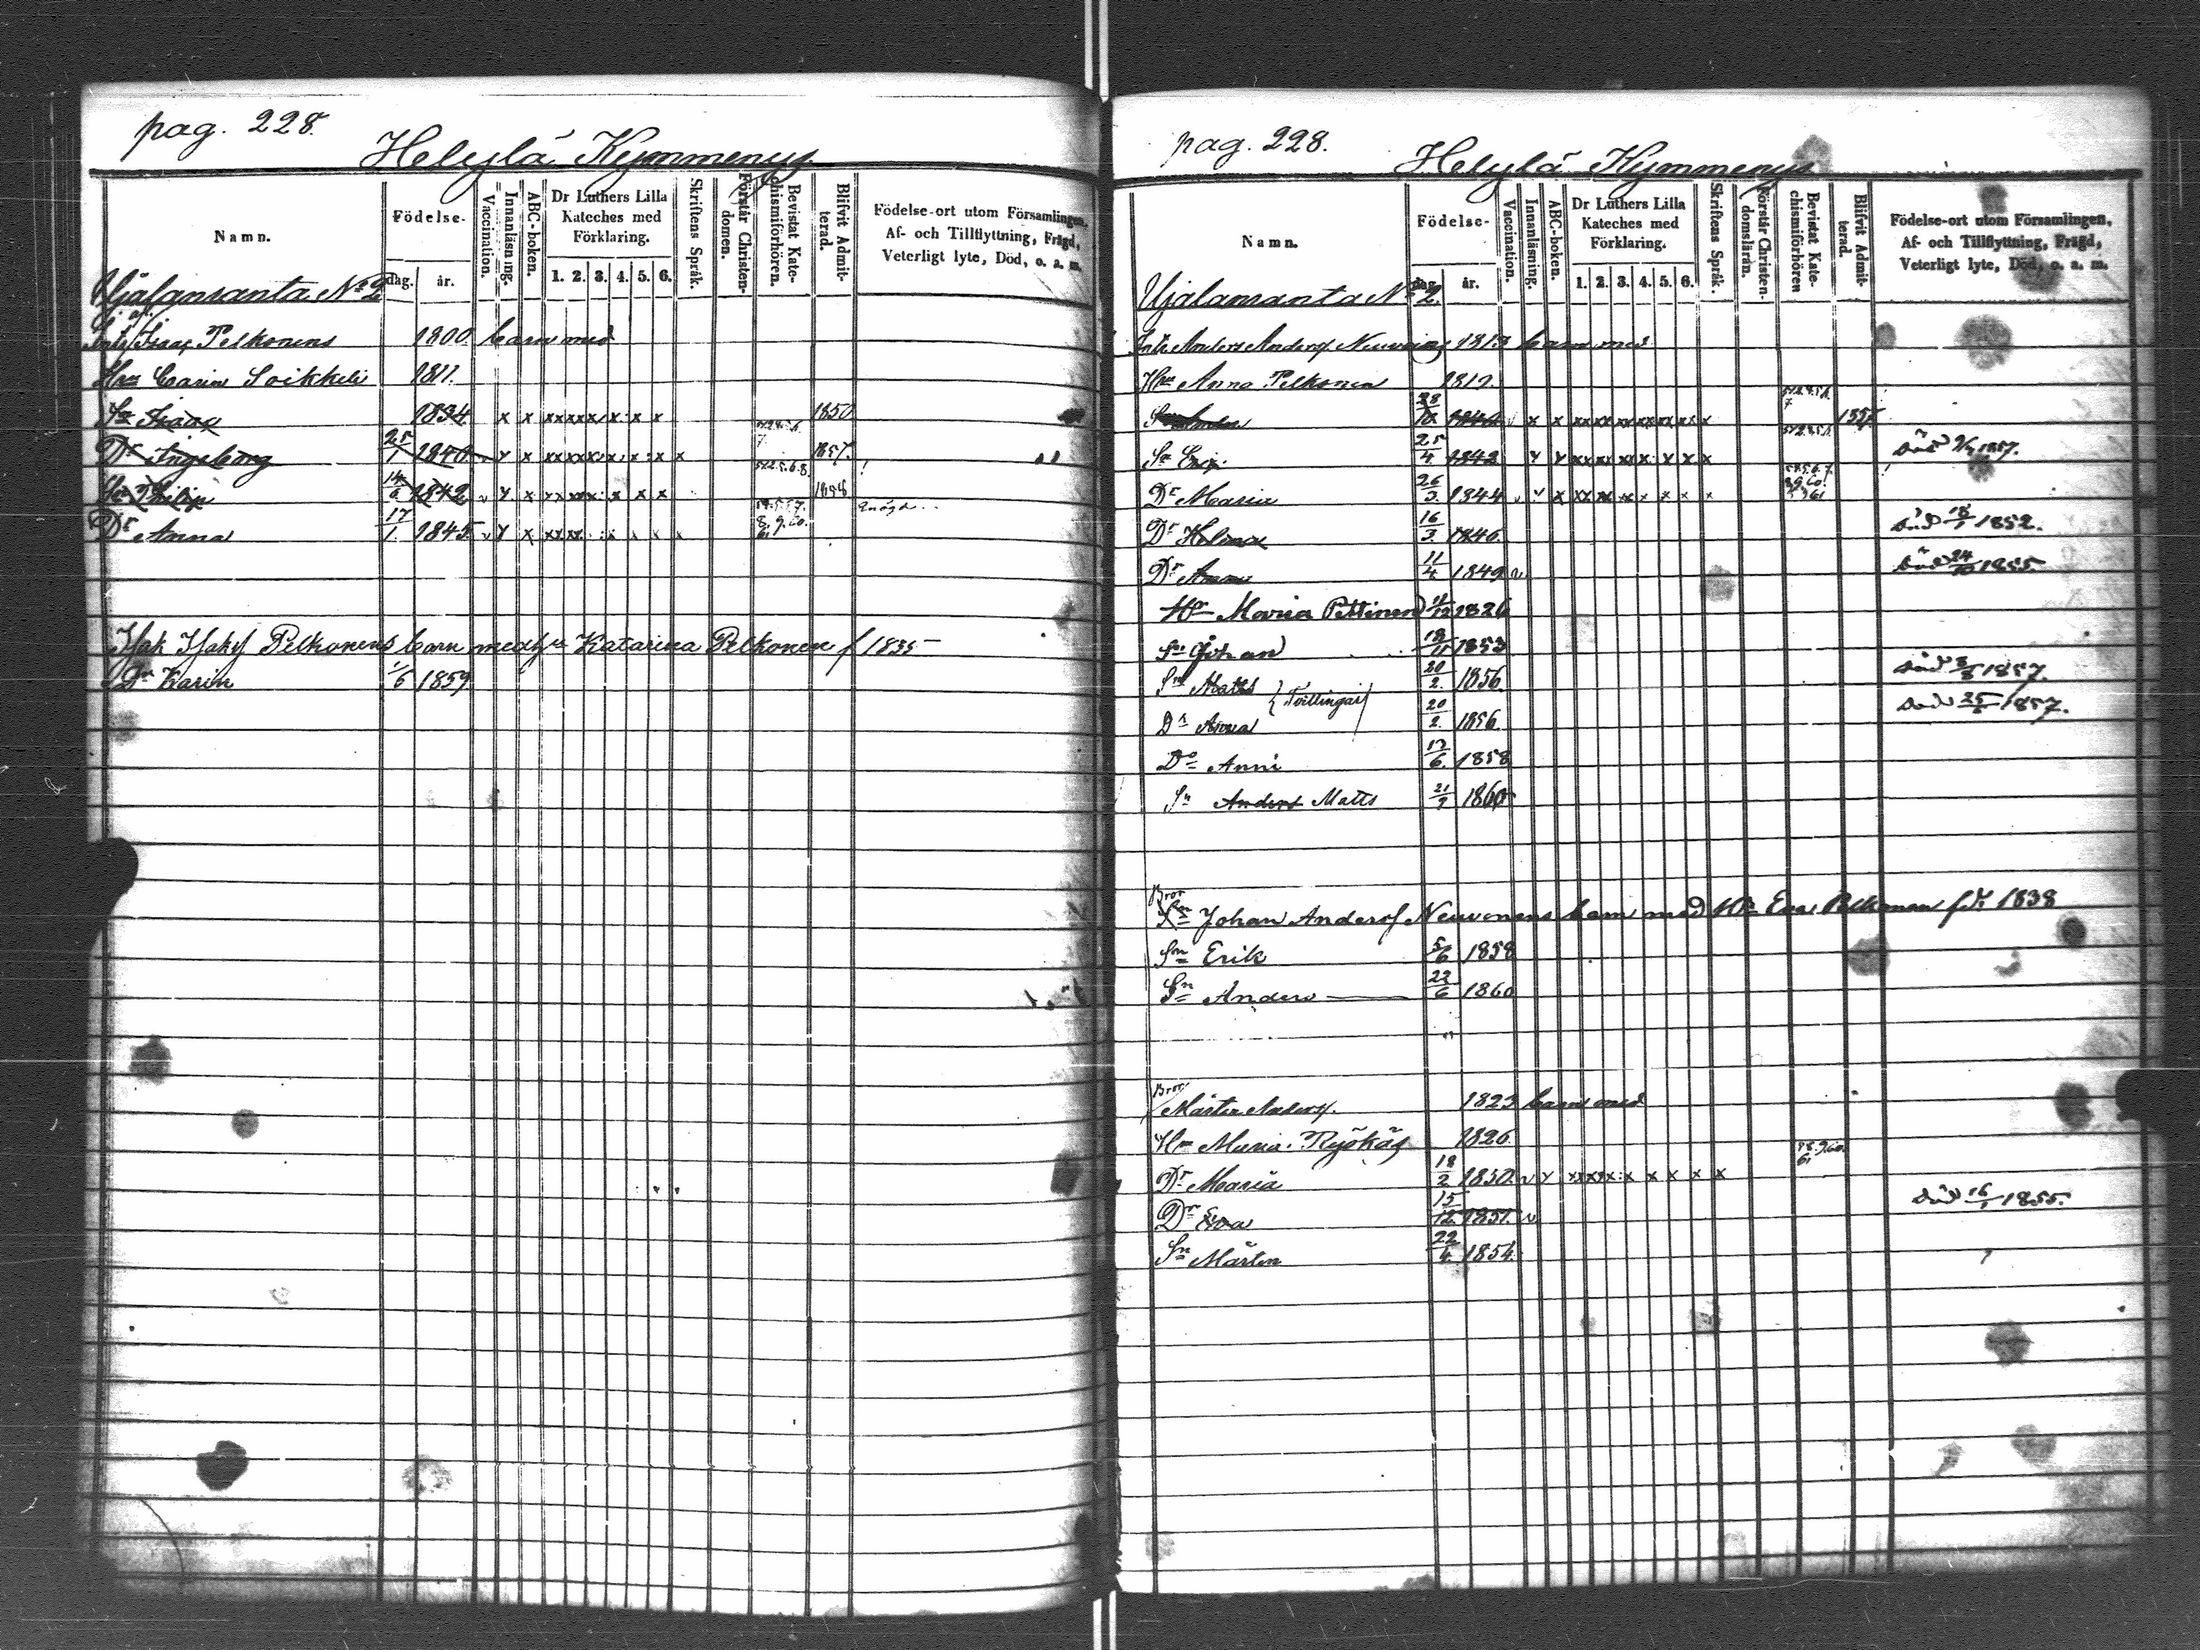 pag. 228.
Helylä Kymmenys
Namn.
Födelse-
dag.
år.
Vaccination.
Innanläsning.
ABC-boken.
Dr Luthers Lilla Kateches med Förklaring.
1. 2. 3. 4. 5. 6.
Skriftens Språk.
Förstår Christendomen.
Bevistat Katechismiförhören.
Blifvit Admitterad.
Födelse-ort utom Församlingen,
Af- och Tillflyttning, Frägd,
Veterligt lyte, Död, o. a. m.
Ujalansanta No 2
Isaac Pelkonens 1800 barn med
Hru Carin Soikkeli 1811.
Sn Isaac 1834. x x x x x x x x x 1850
Dr Ingeborg 25/1 1840 x x x x x x x x x 1857.
Sn Philip 14/6 1842 x x x x x x x x 1858
Dr Anna 17/1 1845 x x x x x
Isak Isaksf Pelkonens barn med hu Katarina Pelkonen f 1835
Dr Karin 1/6 1859
pag. 228.
Helylä Kymmenys
Namn.
Födelse-
dag.
år.
Vaccination.
Innanläsning.
ABC-boken.
Dr Luthers Lilla Kateches med Förklaring.
1. 2. 3. 4. 5. 6.
Skriftens Språk.
Förstår Christendomsläran.
Bevistat Katechismiförhören
Blifvit Admitterad.
Födelse-ort utom Församlingen,
Af- och Tillflyttning, Frägd,
Veterligt lyte, Död, o. a. m.
Ujalansanta No 2.
Anders Andersf 1813 barn med
Hru Anna Pelkonen 1812.
28/10
Sn Eric 25/4 1842 död 1857.
Dr Maria 26/3 1844
Dr Helena 16/3 1846. död 18/1 1852.
Dr Anna 11/4 1849 död 24/10 1855.
Hu Maria Pettinen 1826
Sn Johan 18/11 1853
Sn Matts 20/2. 1856 död 3/8 1857.
Tvillingar
Dr Anna 20/2. 1856. död 25/6 1857.
Dr Anni 17/6. 1858
Sn Anders Matts 21/9 1860
Bror
Johan Andersf Neuvonens barn med Hu Eva Pelkonen föd 1838
Sn Erik 5/6 1858
Sn Anders 22/6 1860
Bror
Mårten Andersf. 1823 barn med
Hru Maria 1826.
Dr Maria 18/2 1850. x x x x x x x x
Dr Eva 15/12 1851. död 16/1 1855.
Sn Mårten 22/4 1854.